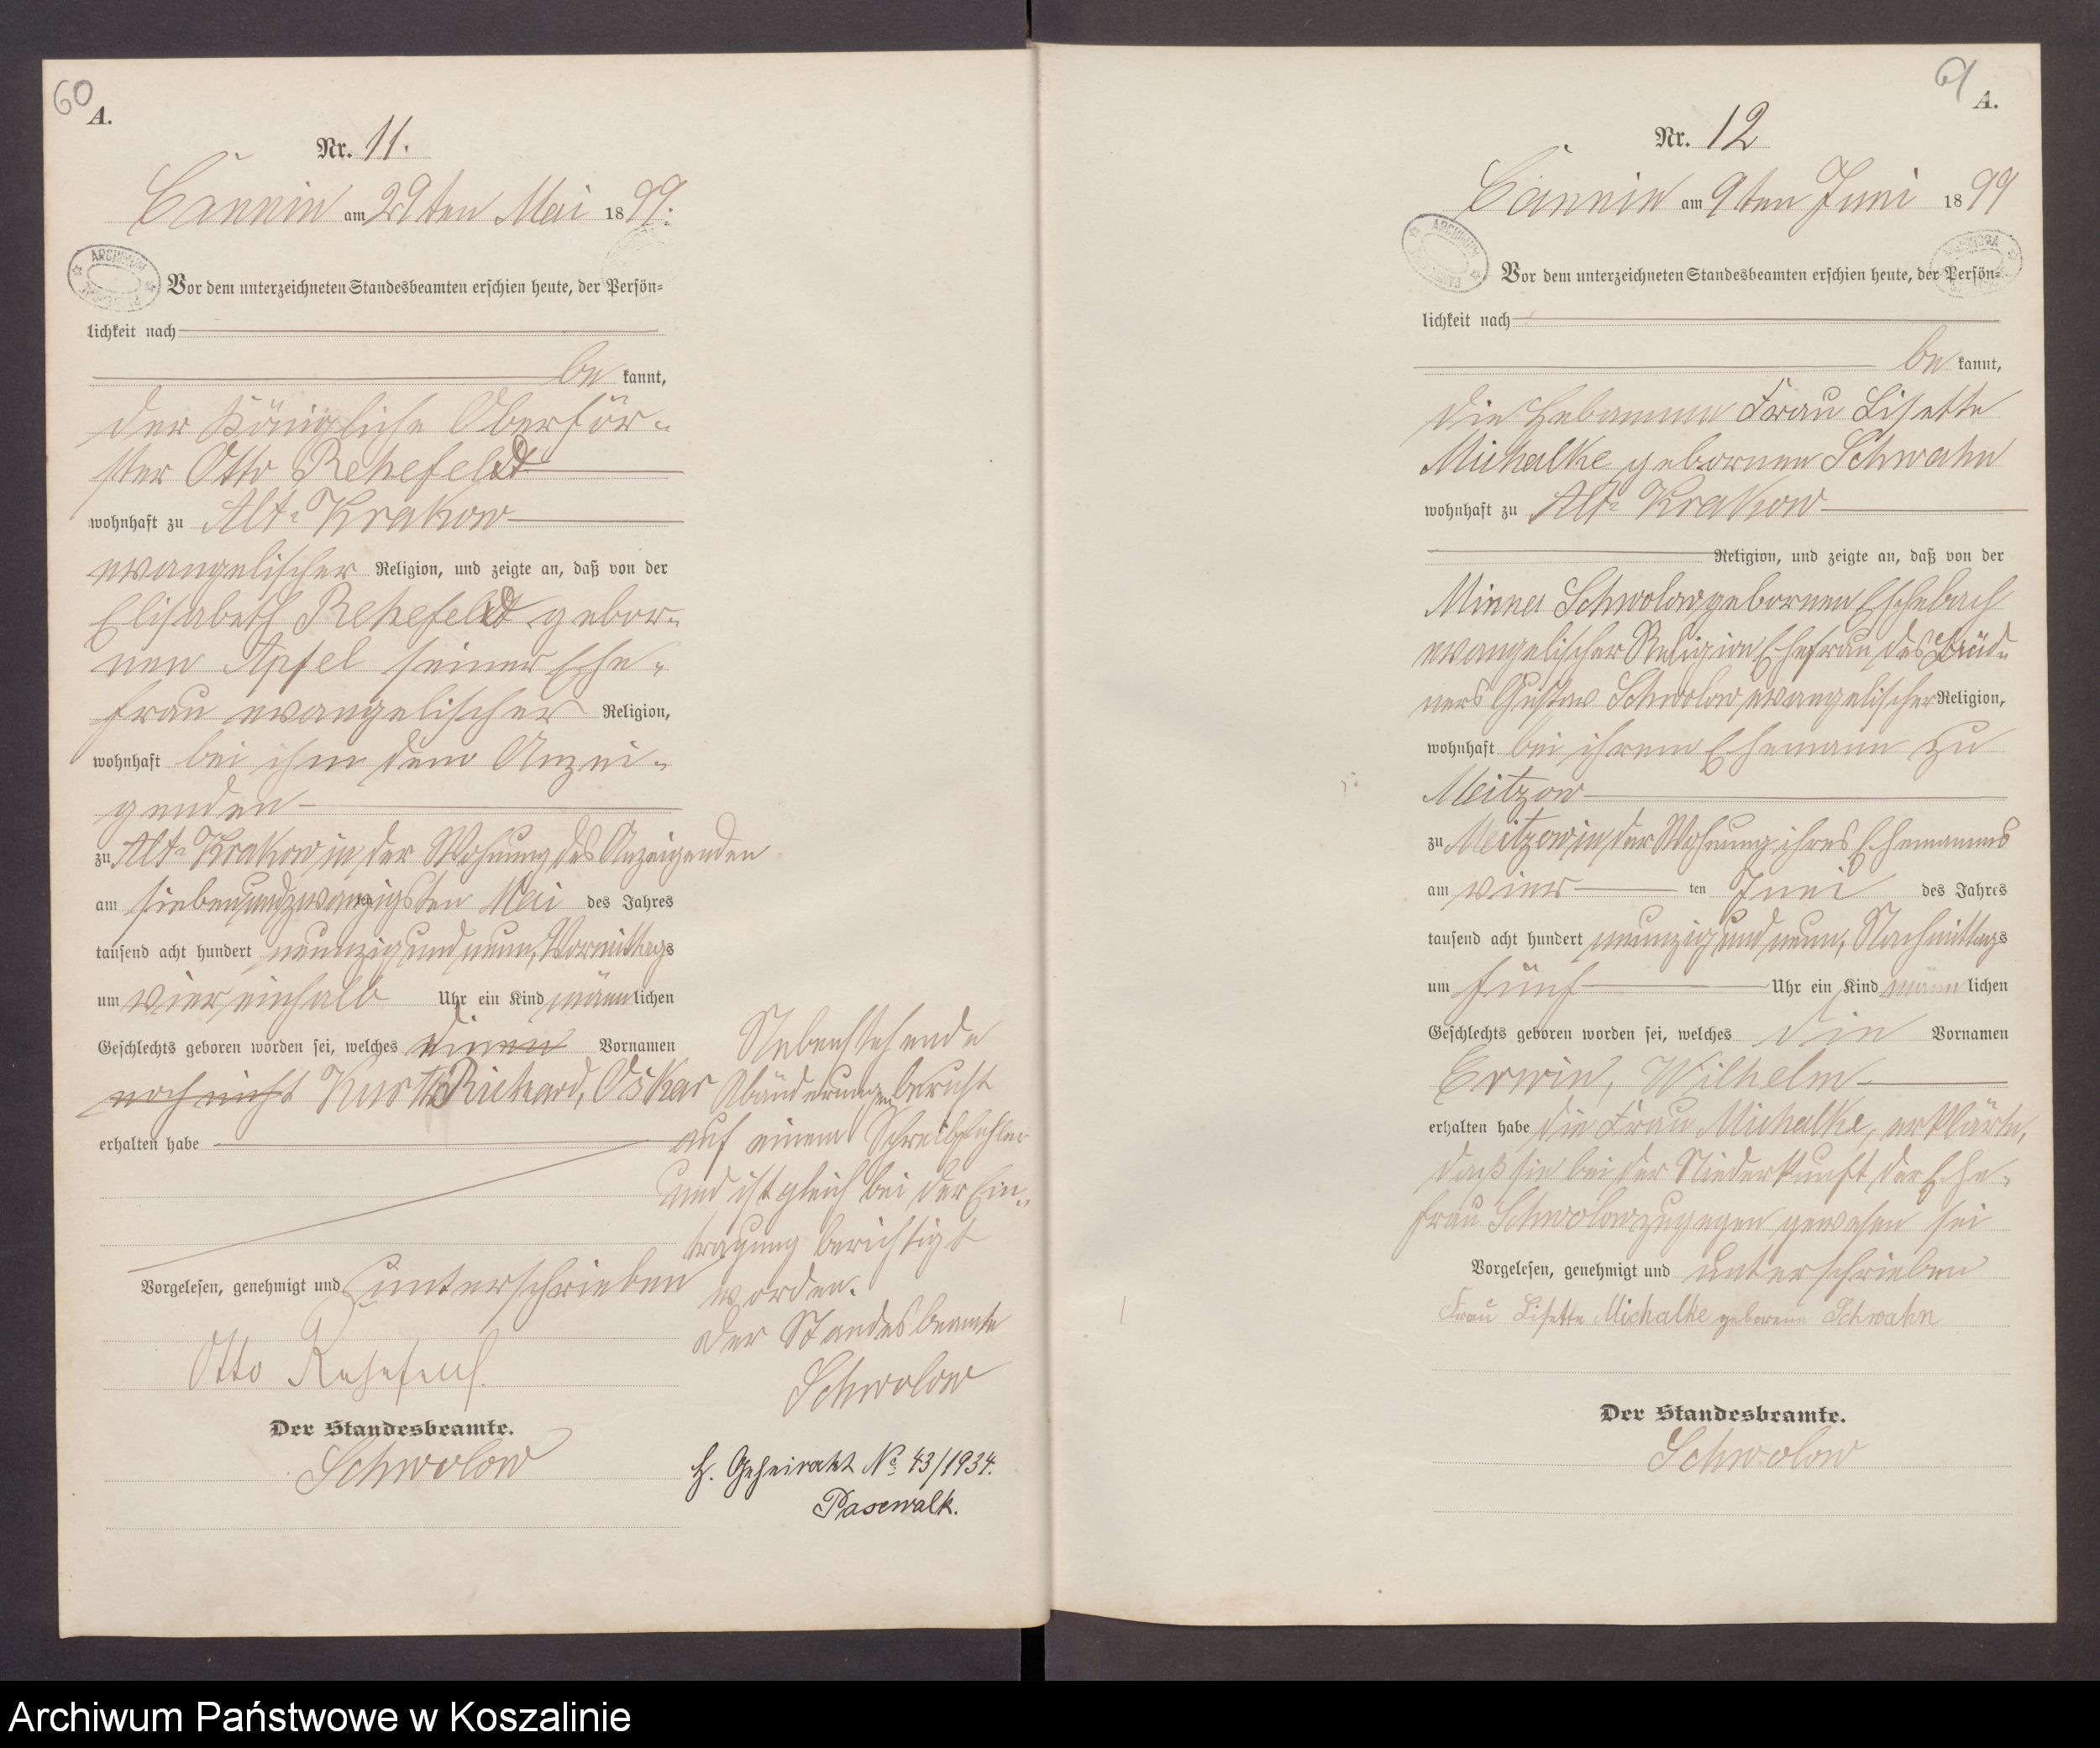 60
A.
Nr. 11.
Cannin am 29ten Mai 1899.
ARCHIWUM
Vor dem unterzeichneten Standesbeamten erschien heute, der Persön=
lichkeit nach
be kannt,
der Königliche Oberför-
ster Otto Rehefeldt
wohnhaft zu Alt-Krakow
evangelischer Religion, und zeigte an, daß von der
Elisabeth Rehefeldt gebor-
nen Apfel seiner Ehe-
frau evangelischer Religion,
wohnhaft bei ihm dem Anzei-
genden
zu Alt-Krakow in der Wohnung des Anzeigenden
am siebenundzwanzigsten Mai des Jahres
tausend acht hundert neunzig und neun, Vormittags
um vier einhalb Uhr ein Kind männlichen
Geschlechts geboren worden sei, welches einen Vornamen
noch nicht Kurth Richard, Oskar
erhalten habe
Vorgelesen, genehmigt und unterschrieben
Otto Rehefeld.
Der Standesbeamte.
Schwolow
Nebenstehende
Abänderungen beruht
auf einem Schreibfehler
und ist gleich bei der Ein-
tragung berichtigt
worden.
Der Standesbeamte
Schwolow
H. Geheiratet No 43/1934.
Pasewalk.
61
A.
Nr. 12
Cannin am 9ten Juni 1899
ARCHIWUM
Vor dem unterzeichneten Standesbeamten erschien heute, der Persön=
lichkeit nach
be kannt,
die Hebamme Frau Lisette
Michalke gebornen Schwahn
wohnhaft zu Alt-Krakow
Religion, und zeigte an, daß von der
Minna Schwolow gebornen Eschebach
evangelischer Religion Ehefrau des Büd-
ners Gustav Schwolow evangelischer Religion,
wohnhaft bei ihrem Ehemann zu
Meitzow
zu Meitzow in der Wohnung ihres Ehemannes
am vier ten Juni des Jahres
tausend acht hundert neunzig und neun, Nachmittags
um fünf Uhr ein Kind männlichen
Geschlechts geboren worden sei, welches die Vornamen
Erwin, Wilhelm
erhalten habe die Frau Michalke, erklärte,
daß sie bei der Niederkunft der Ehe-
frau Schwolow zugegen gewesen sei
Vorgelesen, genehmigt und unterschrieben
Frau Lisette Michalke geborene Schwahn
Der Standesbeamte.
Schwolow
Archiwum Państwowe w Koszalinie